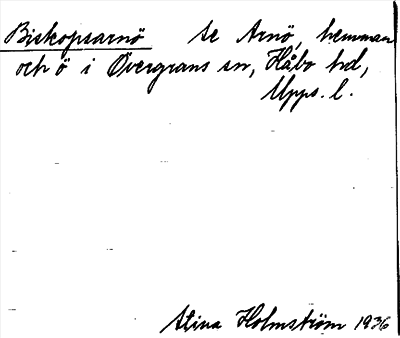 Biskopsarnö se Arnö, hemman
och ö i Övergrans sn, Håbo hd,
Upps. l.
Stina Holmström 1936